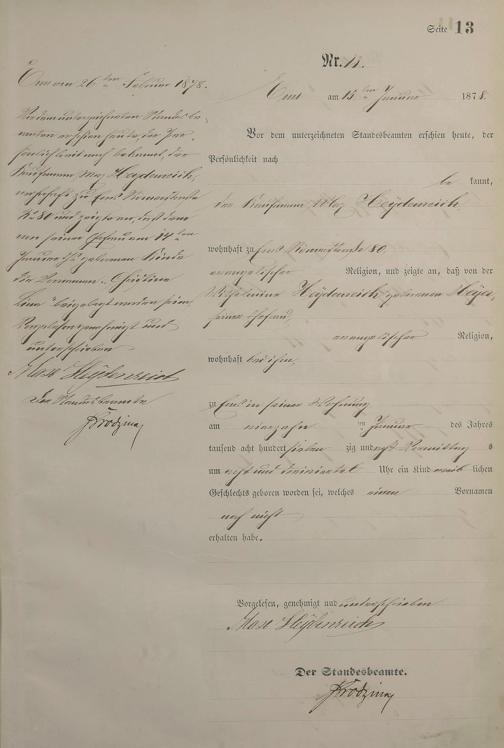 Seite 13
Nr. 11.
Ems am 15ten Januar 1878.
Vor dem unterzeichneten Standesbeamten erschien heute, der
Persönlichkeit nach
be kannt,
der Kaufmann Max Heydenreich
wohnhaft zu Ems Römerstraße 80,
evangelischer Religion, und zeigte an, daß von der
Wilhelmine Heydenreich geborenen Meyer,
seiner Ehefrau,
evangelischer Religion,
wohnhaft bei ihm
zu Ems in seiner Wohnung
am vierzehn ten Januar des Jahres
tausend acht hundert sieben zig und acht Vormittags
um acht und dreiviertel Uhr ein Kind weib lichen
Geschlechts geboren worden sei, welches einen Vornamen
noch nicht
erhalten habe.
Vorgelesen, genehmigt und unterschrieben
Max Heydenreich
Der Standesbeamte.
Ems am 26ten Februar 1878.
Vor dem unterzeichneten Standesbe-
amten erschien heute, der Per-
sönlichkeit nach bekannt, der
Kaufmann Max Heydenreich,
wohnhaft zu Ems Römerstraße
No 80 und zeigte an, daß dem
von seiner Ehefrau am 14ten
Januar geborenen Kinde
die Vornamen
beigelegt worden seien
Vorgelesen genehmigt und
unterschrieben
Max Heydenreich
Der Standesbeamte